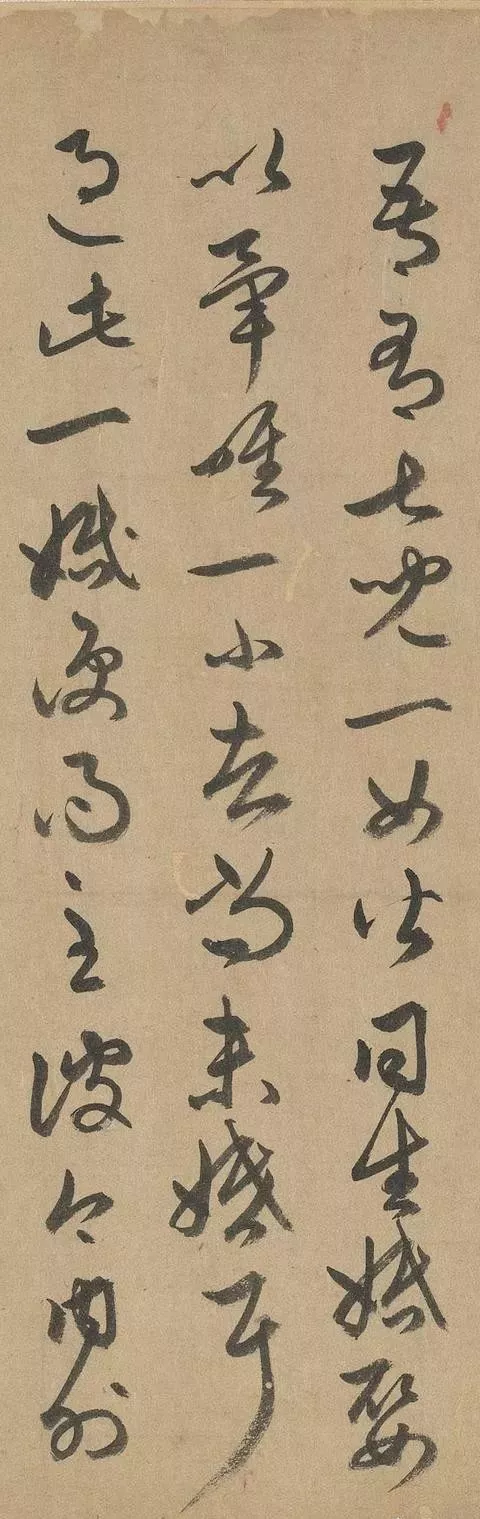 吾有七儿一女皆同生婚娶
以毕唯一小者尚未婚耳
过此一婚便得至彼今内外